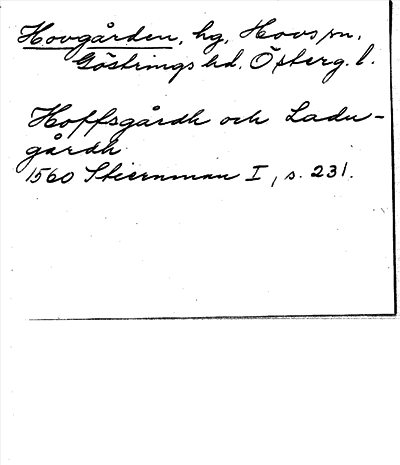 Hovgården, hg, Hovs sn,
Göstrings hd. Österg. l.
Hoffsgårdh och Ladu-
gårdh
1560 Stiernman I, s. 231.